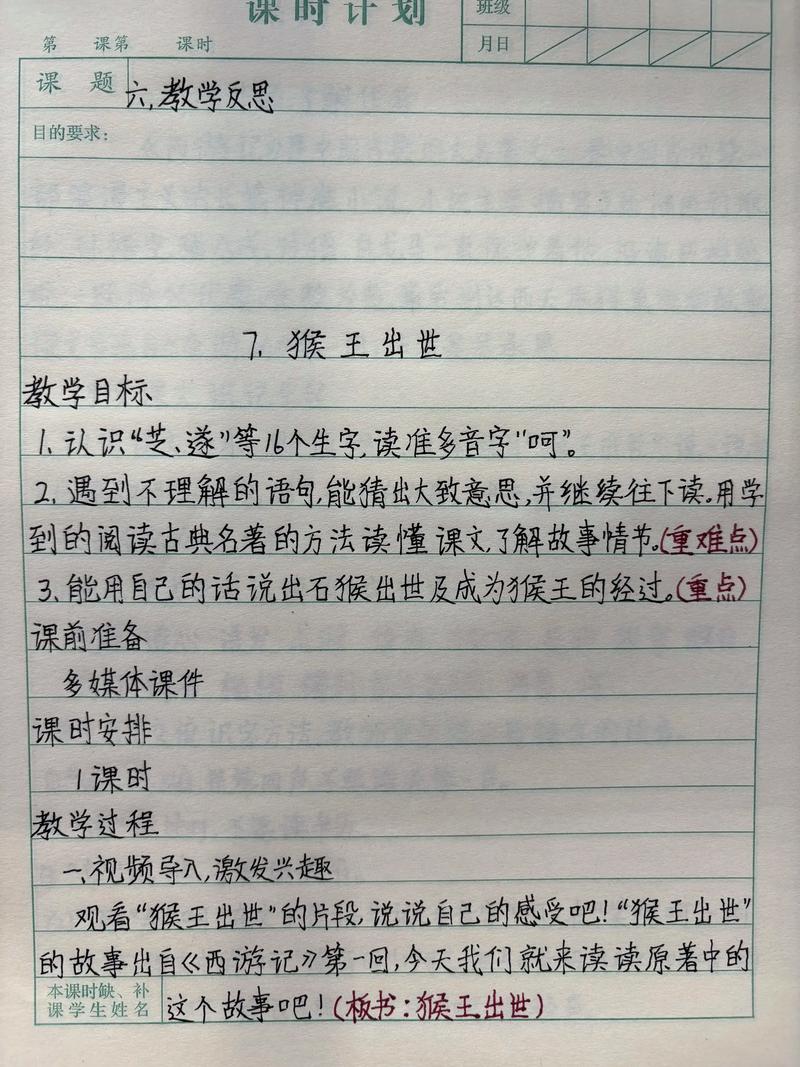 课时计划
班级
第 课第 课时
月日
课题
六、教学反思
目的要求:
7. 猴王出世
教学目标
1. 认识“芝、遂”等16个生字,读准多音字“呵”。
2. 遇到不理解的语句,能猜出大致意思,并继续往下读。用学
到的阅读古典名著的方法读懂课文,了解故事情节。(重难点)
3. 能用自己的话说出石猴出世及成为猴王的经过。(重点)
课前准备
多媒体课件
课时安排
1课时
教学过程
一、视频导入,激发兴趣
观看“猴王出世”的片段,说说自己的感受吧!“猴王出世”
的故事出自《西游记》第一回,今天我们就来读读原著中的
本课时缺、补
课学生姓名
这个故事吧!(板书:猴王出世)